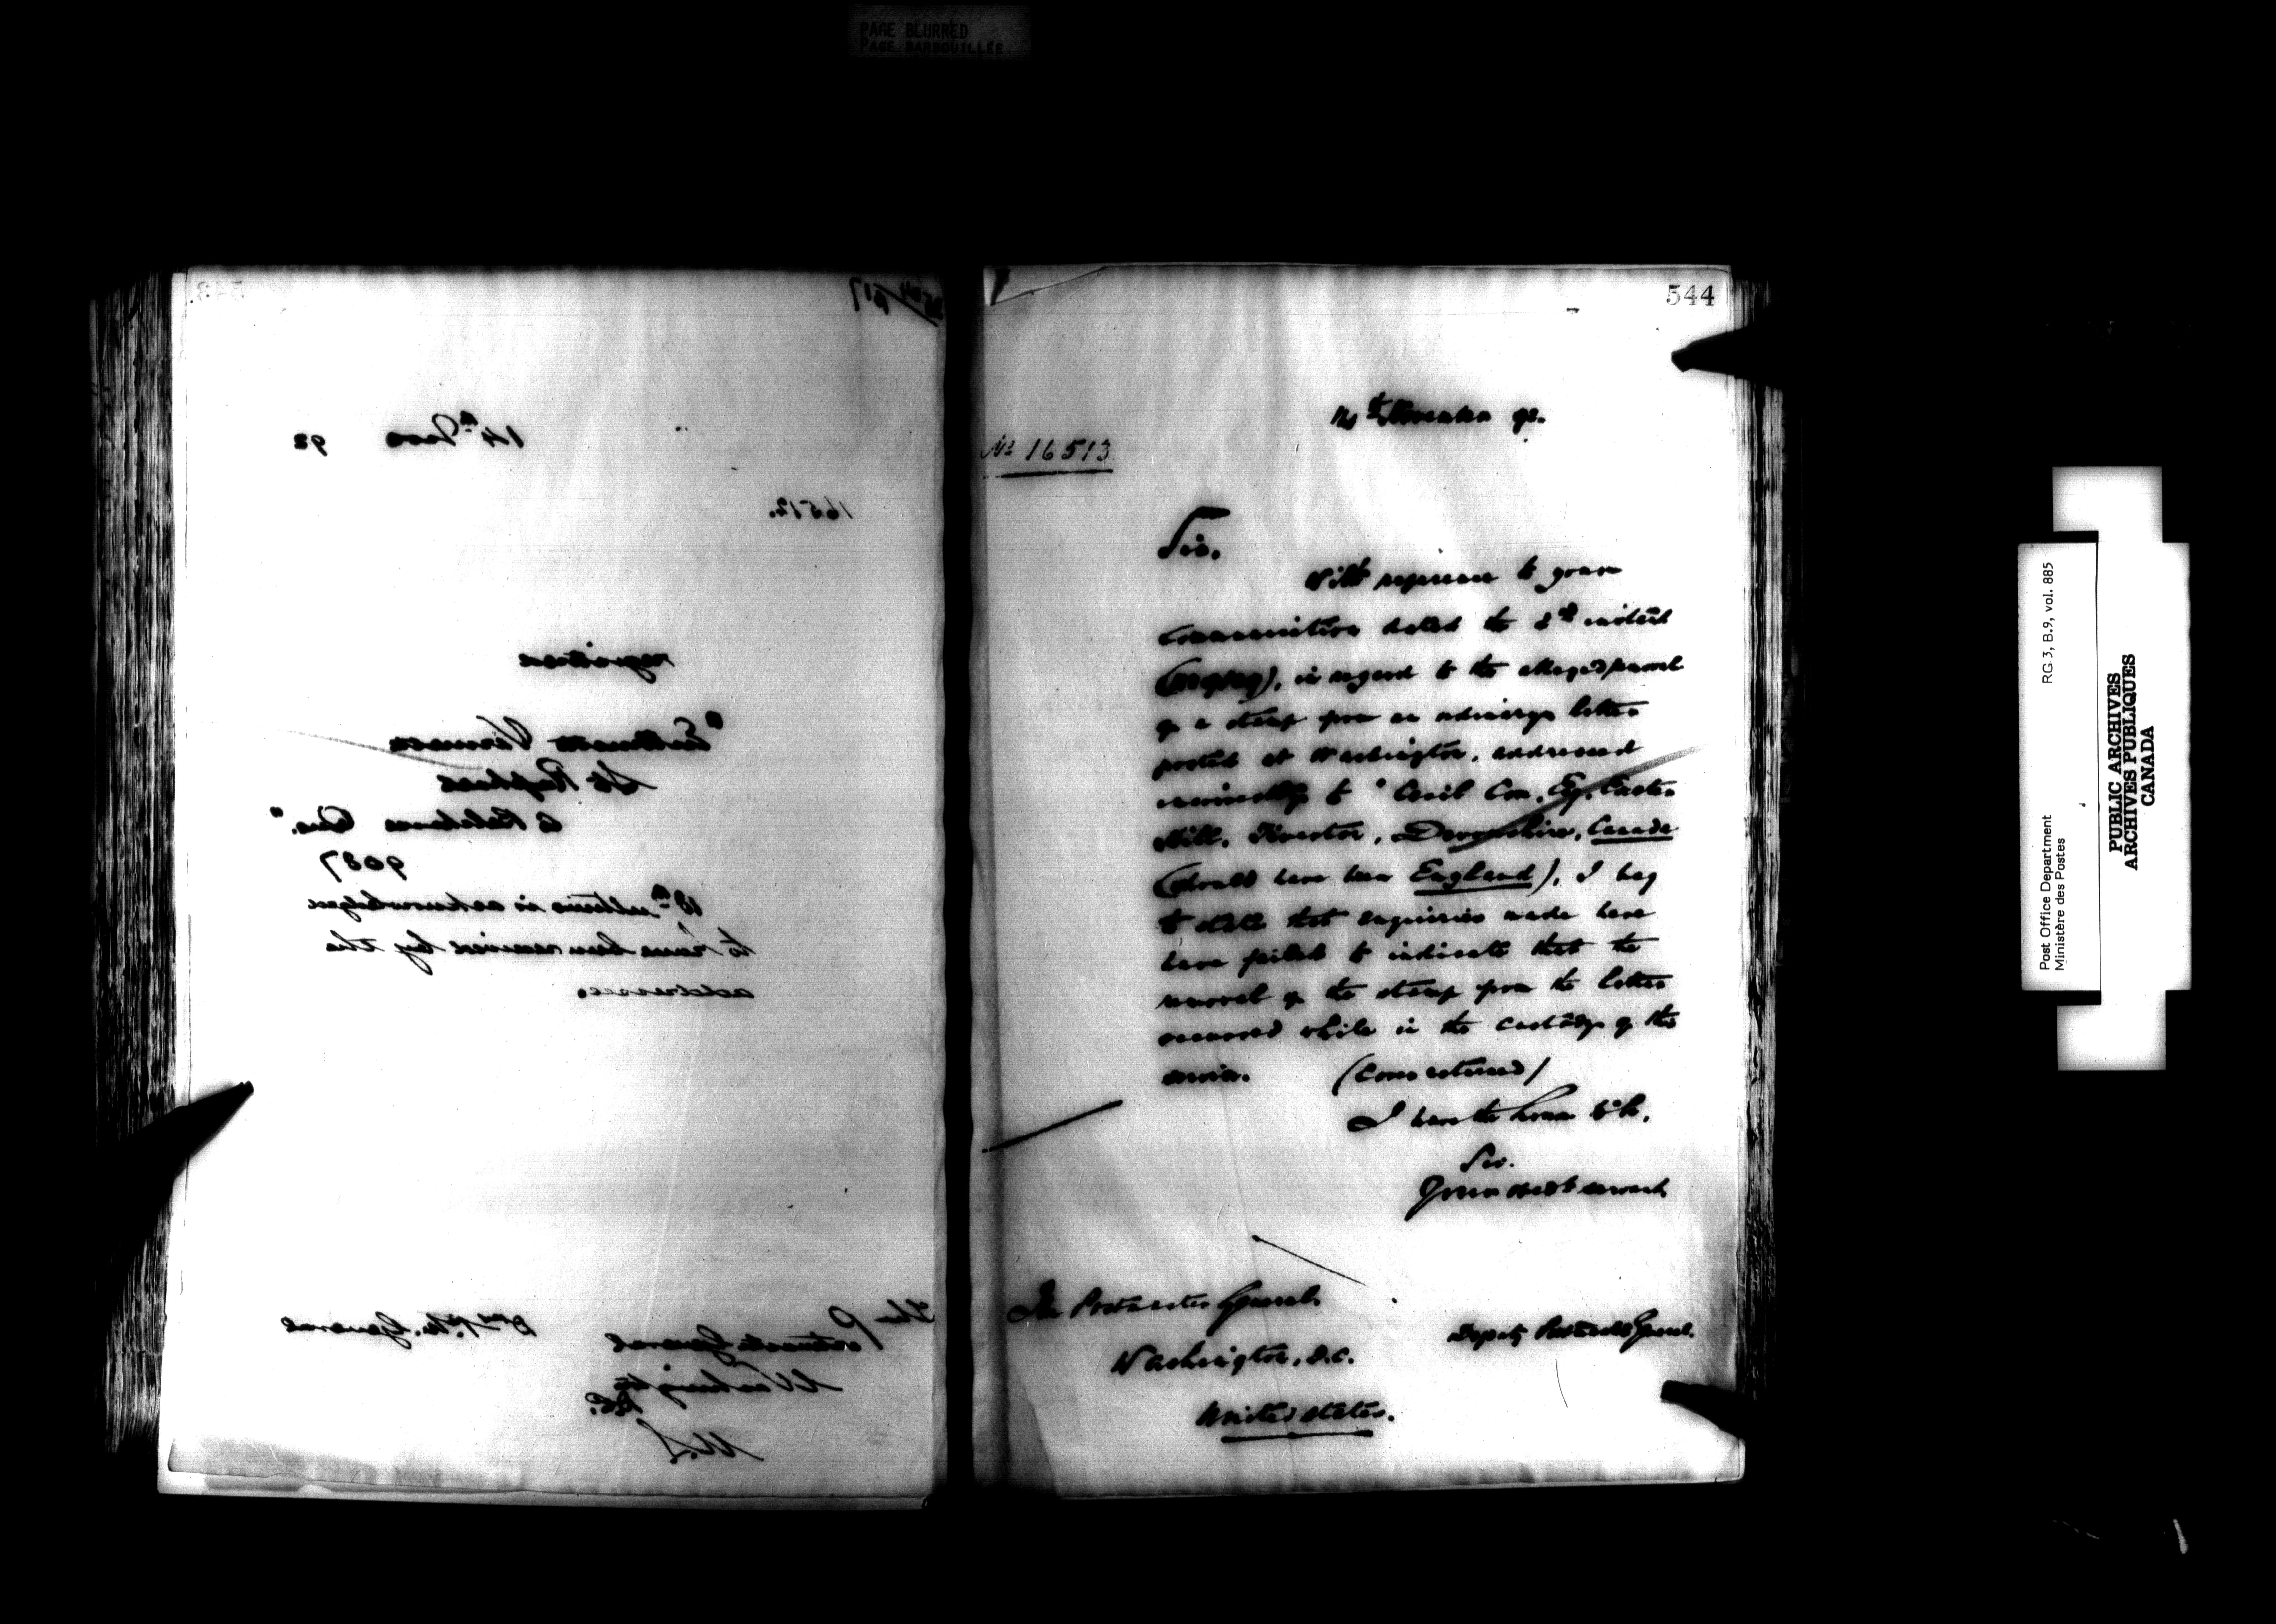 PAGE BLURRED
PAGE BARBOUILLÉE
543
14th Nov 92
16512.
registered
St Raphael
Que."
9087
18th ultimo is acknowledged
to have been received by the
addressee.
The Postmaster General
Washington
D.C.
P.M. General
544
November 92.
No 16513
Sir,
With reference to your
communication dated the 2nd instant
in regard to the alleged removal
of a stamp from an ordinary letter
posted at Washington, addressed
to "Cecil Cox, Esq, Exeter
Hill, Tiverton, Devonshire, Canada
(should have been England), I beg
to state that enquiries made here
have failed to indicate that the
removal of the stamp from the letter
occurred while in the custody of this
service. (Cover returned)
I have the honor to be,
Sir,
Your obedt servant
The Postmaster General
Washington, D.C.
United States.
Deputy Postmaster General.
Post Office Department
Ministère des Postes
RG 3, B.9, vol. 885
PUBLIC ARCHIVES
ARCHIVES PUBLIQUES
CANADA